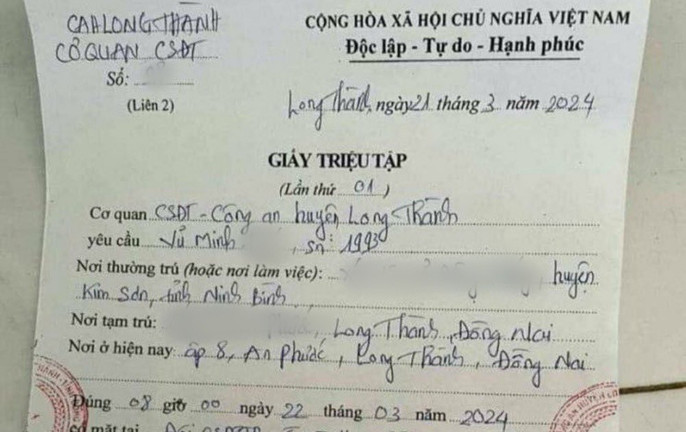 CAH LONG THÀNH
CƠ QUAN CSĐT
Số:
(Liên 2)
CỘNG HÒA XÃ HỘI CHỦ NGHĨA VIỆT NAM
Độc lập - Tự do - Hạnh phúc
Long Thành, ngày 21 tháng 3 năm 2024
GIẤY TRIỆU TẬP
(Lần thứ 01)
Cơ quan CSĐT - Công an huyện Long Thành
yêu cầu Vũ Minh , sn: 1993
Nơi thường trú (hoặc nơi làm việc): , huyện
Kim Sơn, tỉnh Ninh Bình
Nơi tạm trú: , Long Thành, Đồng Nai
Nơi ở hiện nay ấp 8, An Phước, Long Thành, Đồng Nai
Đúng 08 giờ 00 ngày 22 tháng 03 năm 2024
có mặt tại